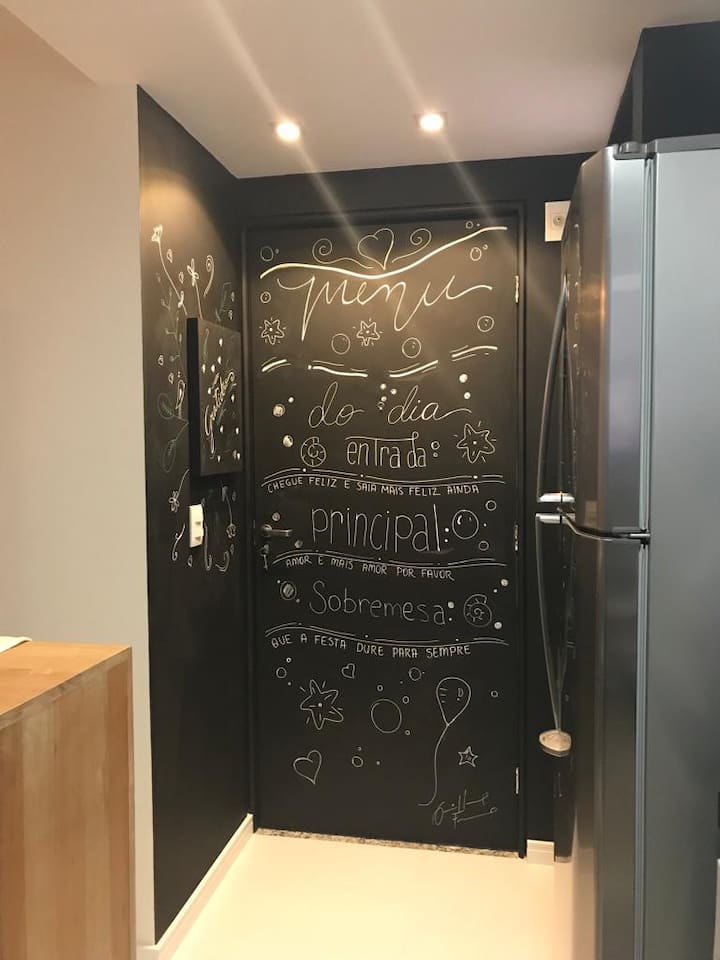 menu
do dia
entrada:
CHEGUE FELIZ E SAIA MAIS FELIZ AINDA
principal:
AMOR E MAIS AMOR POR FAVOR
Sobremesa:
QUE A FESTA DURE PARA SEMPRE